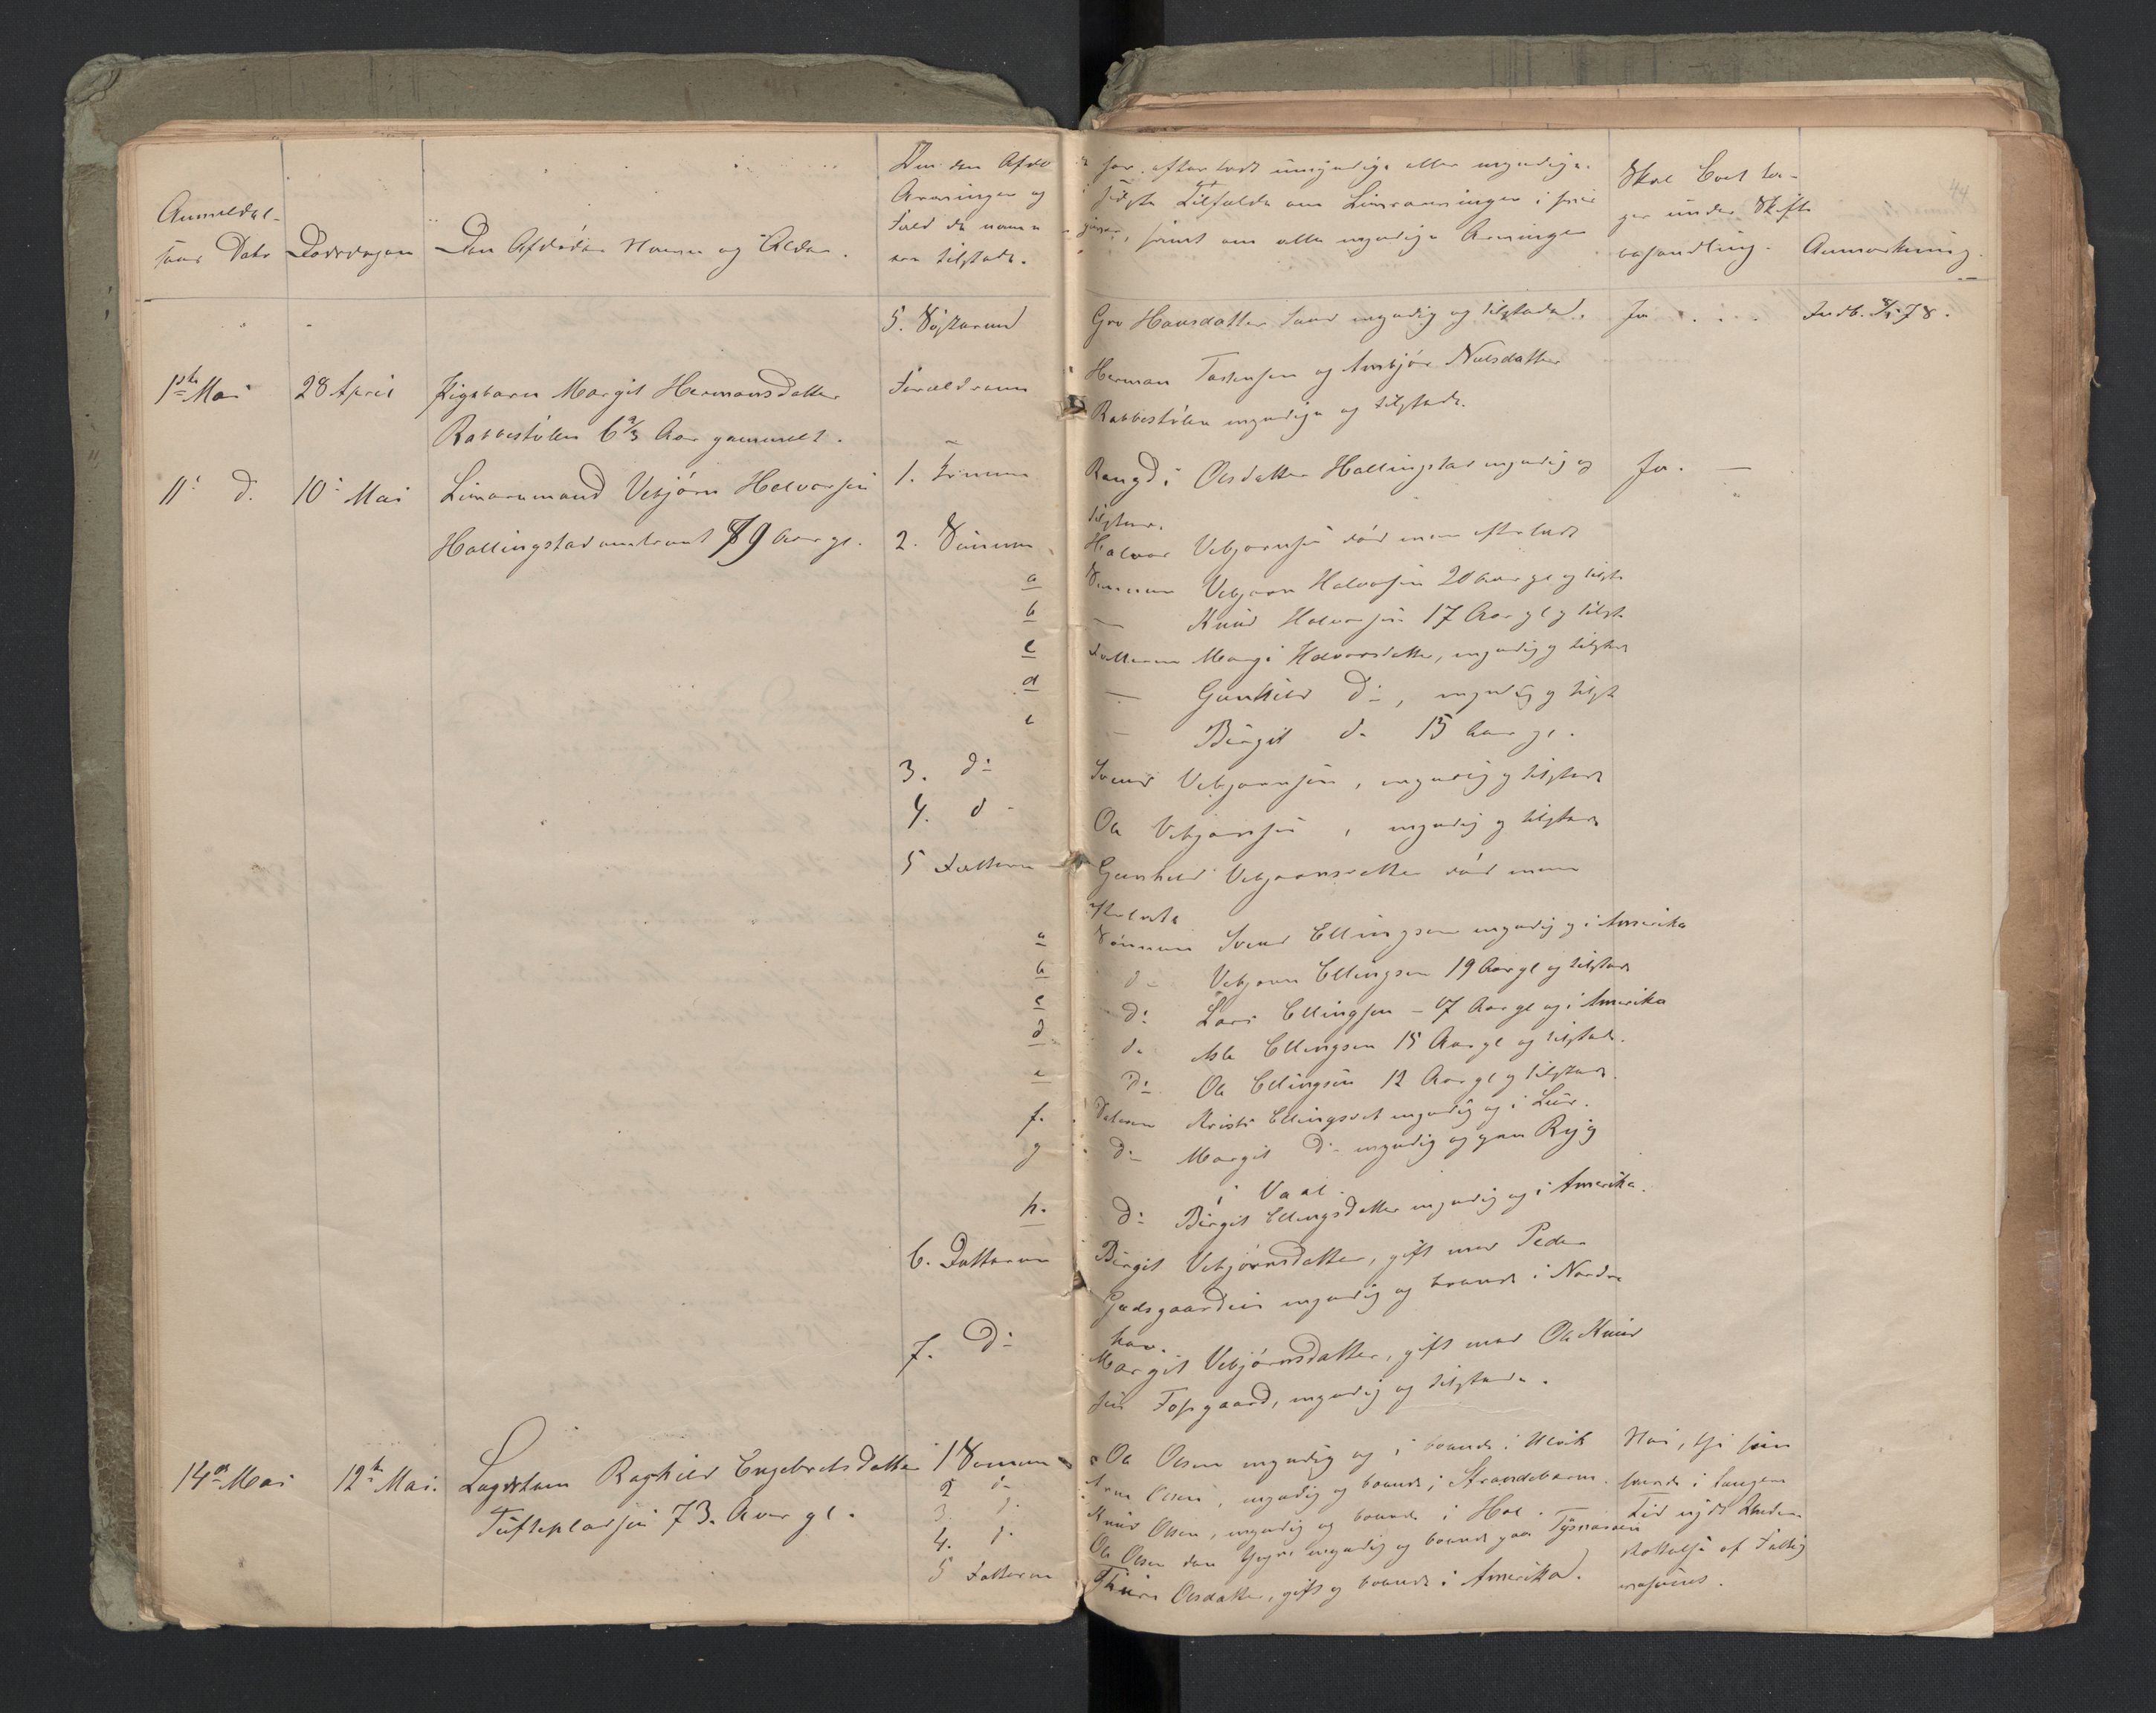 44
Anmeldel-
sens Dato
Dødsdagen
Den Afdødes Navn og Alder.
Om den Afdø
Arvinger og
Fald de nævn
ere tilstede.
har efterladt umyndige eller myndige
sidste Tilfælde om Livsarvinger i
samt om alle myndige Arvinger
Skal Boet ta-
ges under Skifte
behandling.
Anmærkning.
5. Søsteren
Gro Hansdatter myndig og tilstede.
Ja
Indb. 78.
1ste Mai
28 April
Pigebarn Margit Hermansdatter
Rabbestølen 6 2/3 Aar gammelt.
Forældrene
Herman Tostensen og Ambjør Nielsdatter
Rabbestølen myndige og tilstede.
11. d.
10. Mai
Livøremand Vebjørn Halvorsen
Hallingstad 79 Aar gl.
1. Enken
Rangdi Olsdatter Hallingstad myndig og
tilstede.
Ja. —
2. Sønnen
Halvor Vebjørnsen død men efterladt
a Sønnen Vebjørn Halvorsen 20 Aar gl og tilst
b — Knud Halvorsen 17 Aar gl og tilst
c Datteren Margi Halvorsdatter, myndig og tilsted
d — Gunhild Do, myndig og tilst
e — Birgit do 15 Aar gl.
3. do
Svend Vebjørnsen, myndig og tilstede
4. do
Ole Vebjørnsen, myndig og tilstede
5 Datteren
Gunhild Vebjørnsdatter død men
efterladt
a Sønnen Svend Ellingsen myndig og i Amerika
b do Vebjørn Ellingsen 19 Aar gl og tilstede
c do Lars Ellingsen 17 Aar gl og i Amerika
d do Asle Ellingsen 15 Aar gl og tilstede.
e do Ole Ellingsen 12 Aar gl og tilstede.
f. Datteren Kristi Ellingsdat myndig og i Lier.
g do Margit do myndig og paa Ryg
i Vaal.
h. do Birgit Ellingsdatter myndig og i Amerika.
6. Datteren
Birgit Vebjørnsdatter, gift med Peder
Gjedsgaarden myndig og boende i Nordre
7. Do
Margit Vebjørnsdatter, gift med Ole Knud
sen Fossgaard, myndig og tilstede.
14de Mai
12te Mai.
Lægdslem Ragnhild Engebretsdatter
Tuftepladsen 73. Aar gl.
1 Sønnen
Ole Olsen myndig og boende i Ulvik
2 do
Arne Olsen, myndig og boende i Strandebarm.
3. do
Knud Olsen, myndig og boende i Hol.
4. do
Ole Olsen den Yngre myndig og boende paa Tysnæsøen
5 Datteren
Thuri Olsdatter, gift og boende i Amerika.
Nei, thi hun
havde i længere
Tid nydt Under-
støttelse af Fattig
væsenet.